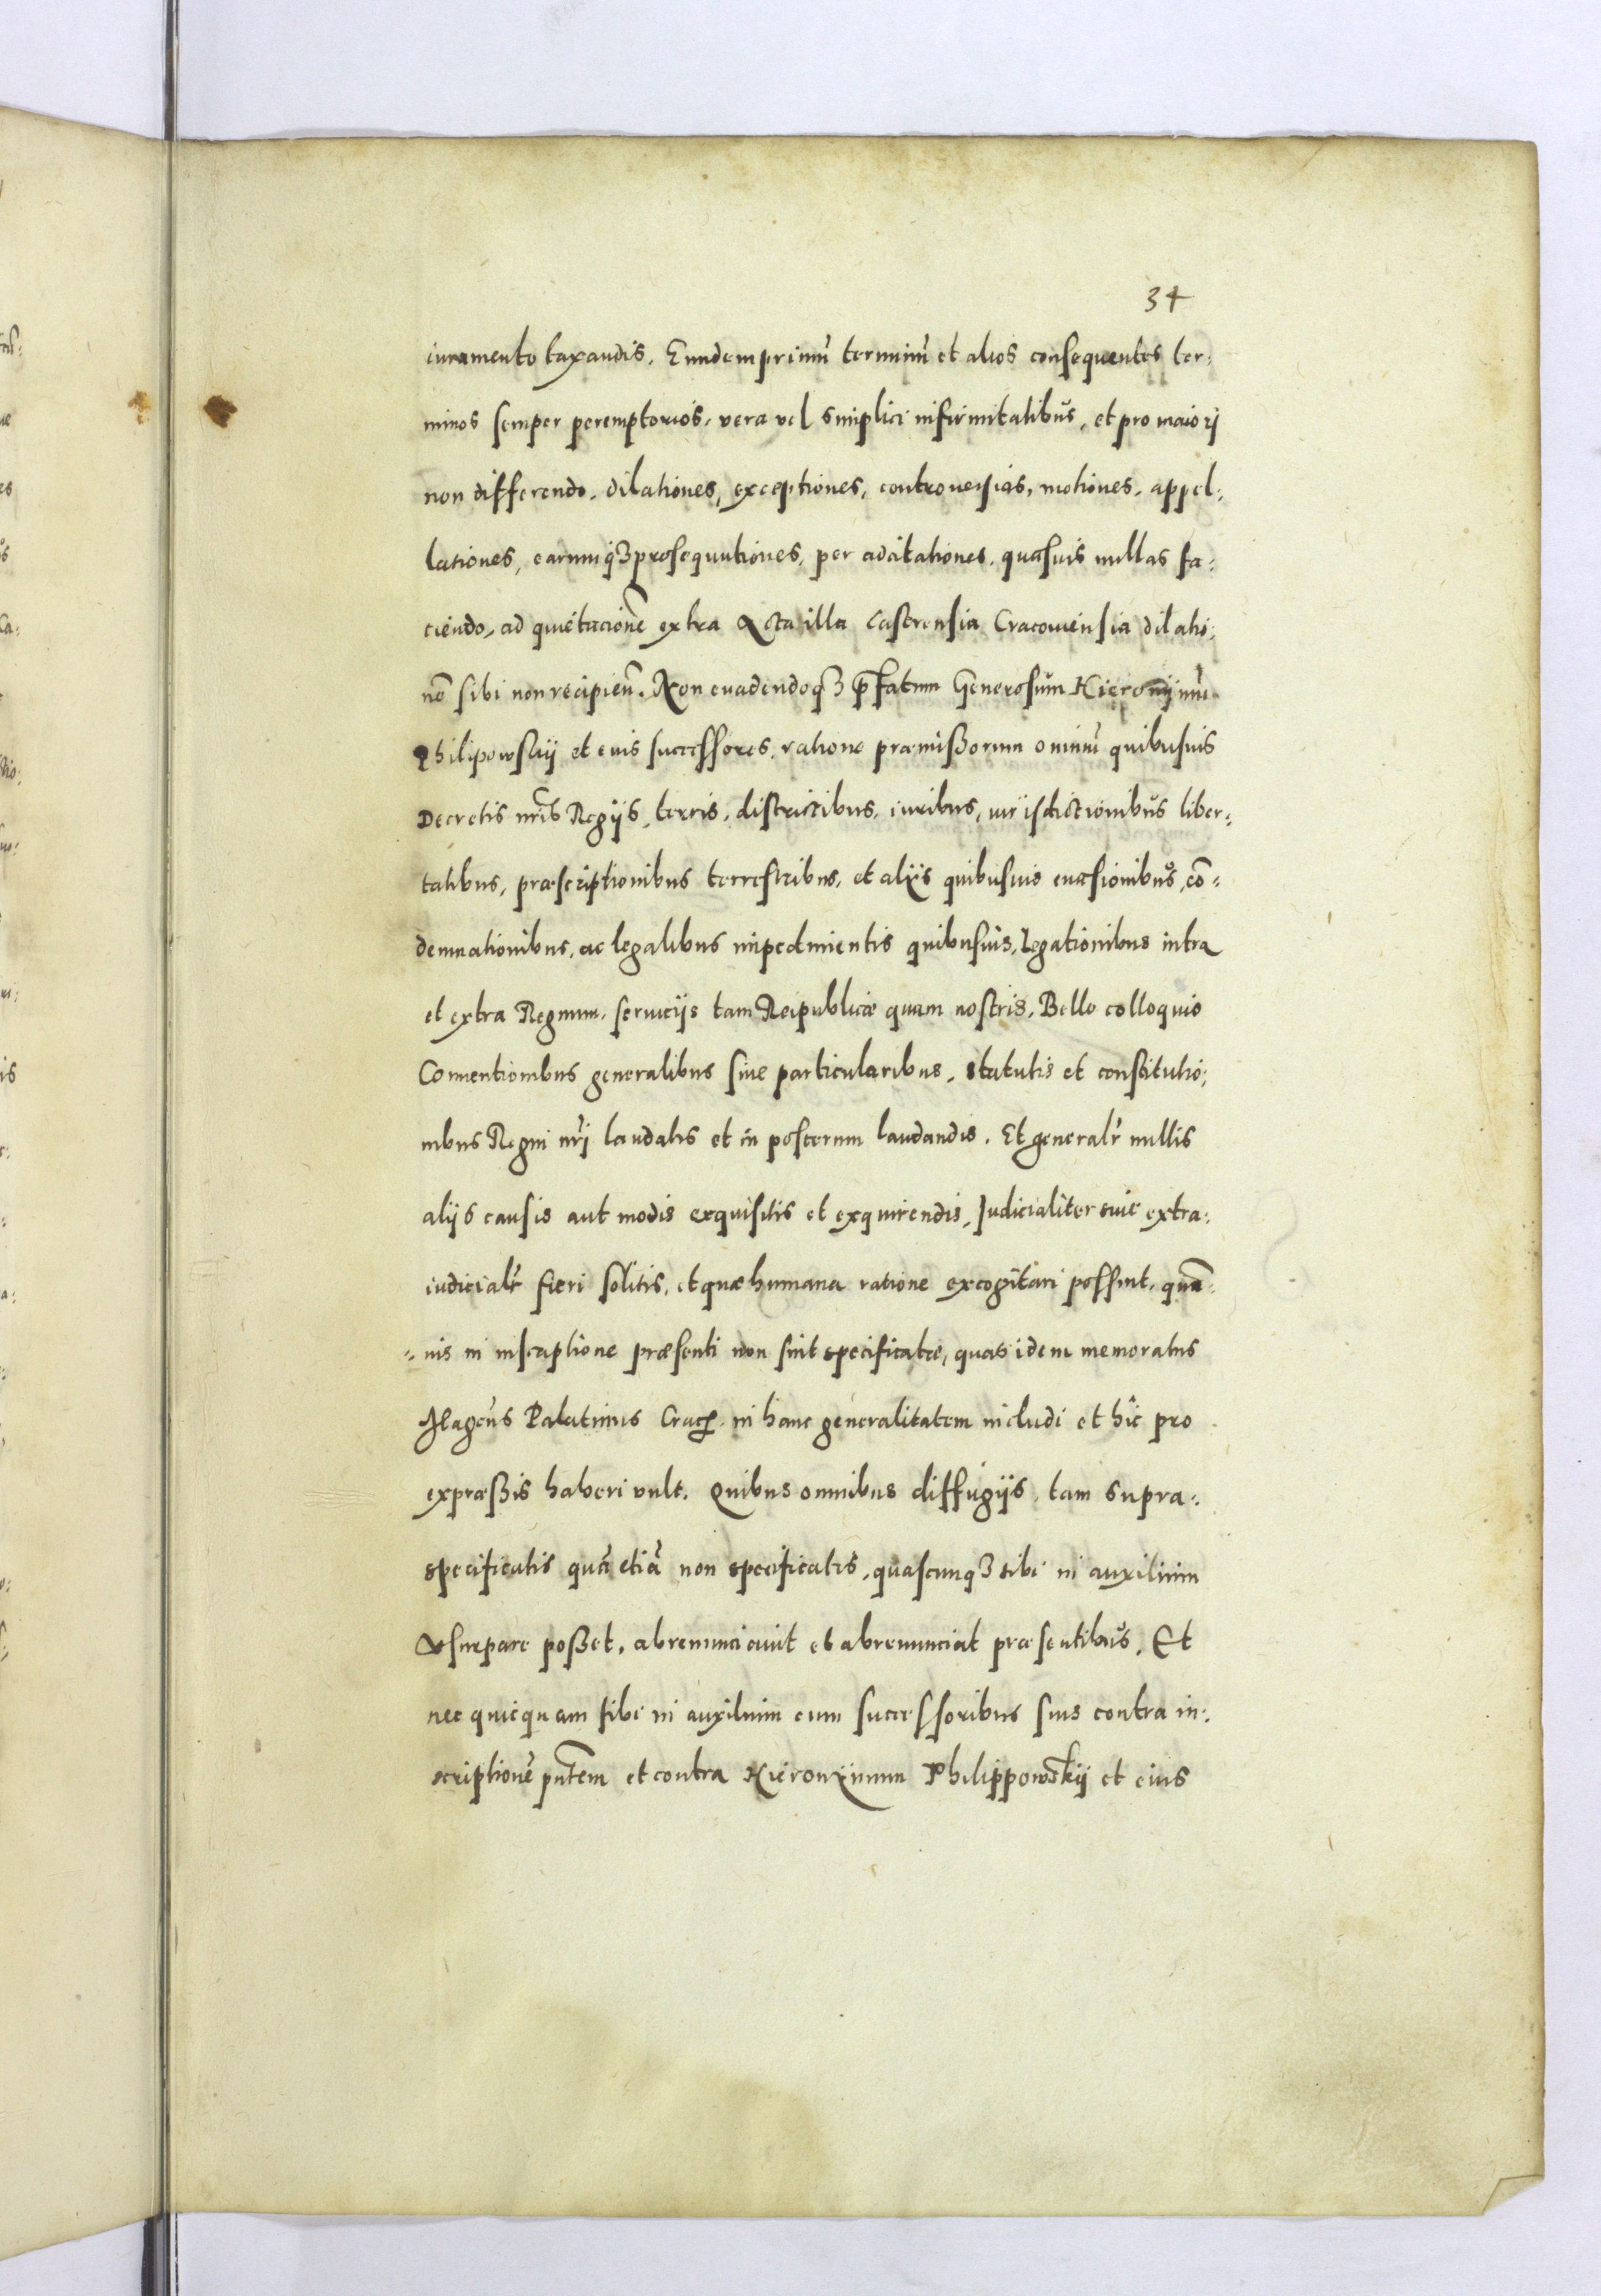 34
iuramento taxandis. Eundem primũ terminũ et alios consequentes ter:
minos semper peremptorios, vera vel simplici infirmitatibus, et pro maiori
non differendo. dilationes, exceptiones, controuersias, motiones, appel:
lationes, earumq3 prosequutiones, per adcitationes, quasuis nullas fa:
ciendo, ad quietacionẽ extra Acta illa Castrensia Cracouiensia dilatio:
nẽ sibi non recipieñ. Non euadendoq3 p̃fatum Generosum Hieronijmũ
Philipowskij et euis successores, ratione præmissorum omniũ quibusuis
Decretis nr̃is Regijs, terris, districtibus, iuribus, iurisdictionibus liber:
tatibus, præscriptionibus terrestribus, et alijs quibusuis euasionibus, cõ:
demnationibus, ac legalibus impedimentis quibusuis, Legationibus intra
et extra Regnum, seruicijs tam Reipublicæ quam nostris, Bello colloquio
Conuentionibus generalibus siue particularibus, statutis et constitutio:
nibus Regni nr̃i laudatis et in posterum laudandis. Et generalr̃ nullis
alijs causis aut modis exquisitis et exquirendis, Judicialiter siue extra:
iudicialr̃ fieri solitis, et quæ humana ratione excogitari possint, quã:
uis in inscriptione præsenti non sint specificatæ, quas idem memoratus
Magcus Palatinus Crac. in hanc generalitatem includi et hic pro
expræssis haberi vult. Quibus omnibus diffugijs, tam supra:
specificatis quã etiã non specificatis, quascunq3 sibi in auxilium
Vsurpare posset, abrenunciauit et abrenunciat præsentibus. Et
nec quicquam sibi in auxilium cum successoribus suis contra in:
scriptionẽ pñtem et contra Hieronymum Philippowskij et eius